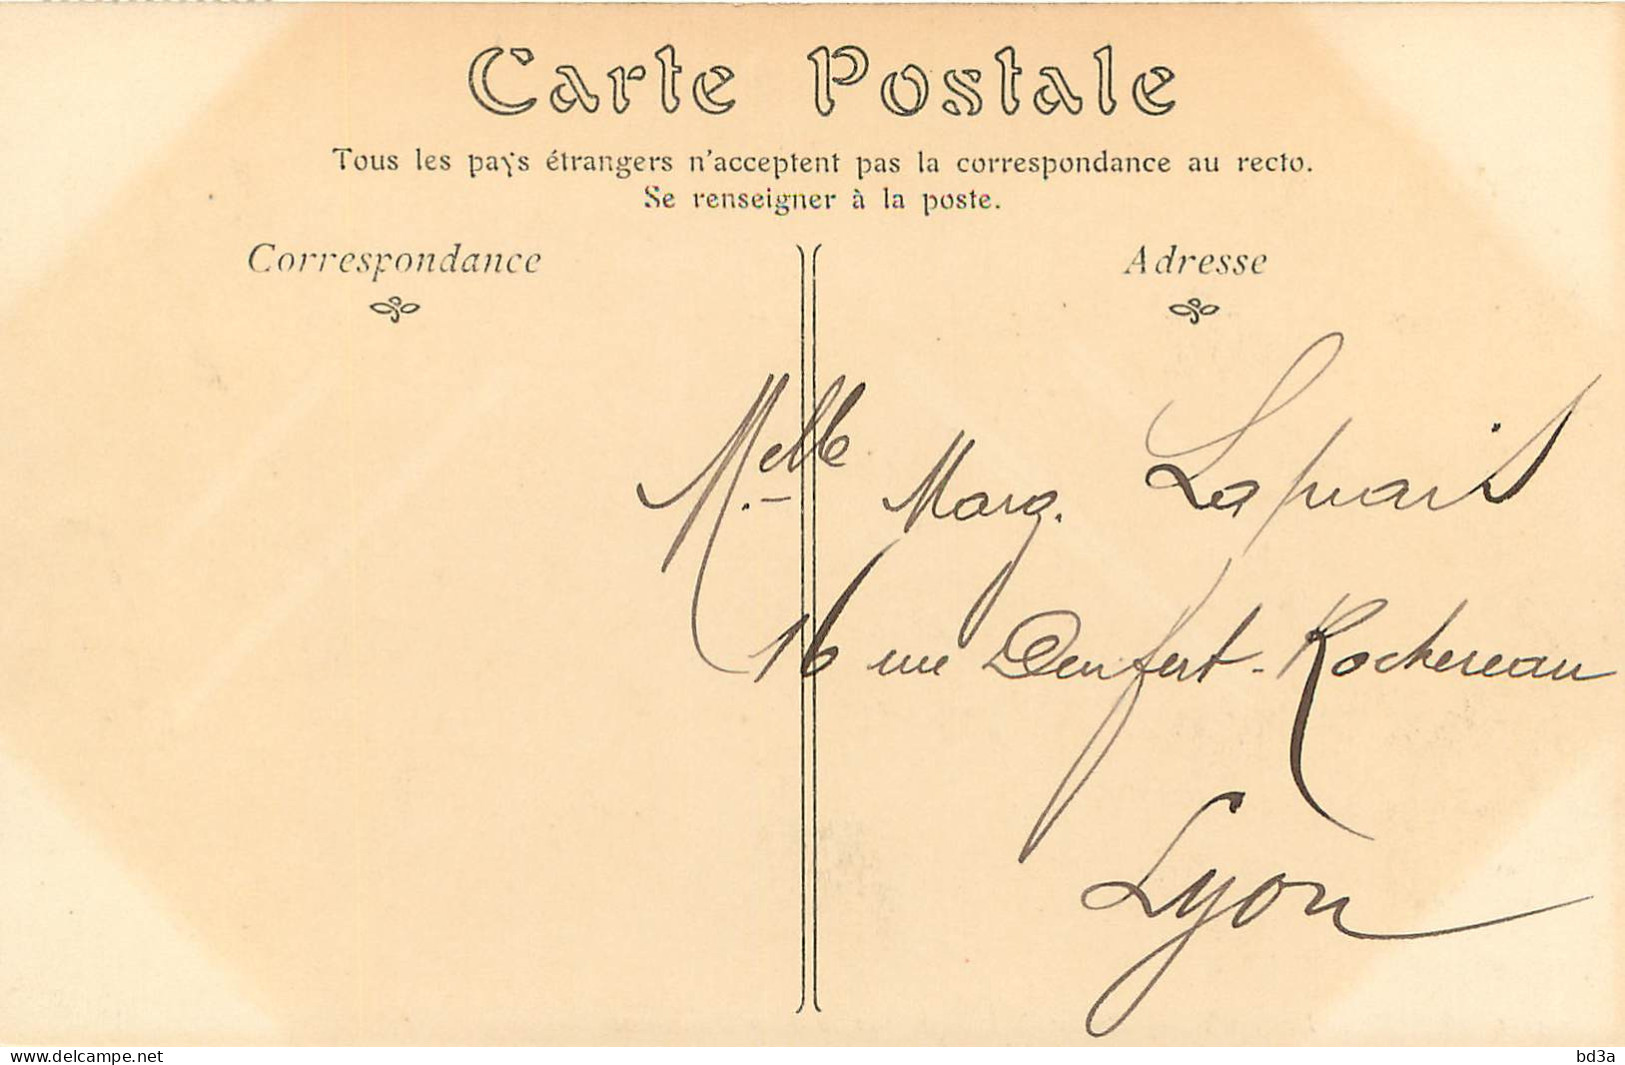 Carte Postale
Tous les pays étrangers n'acceptent pas la correspondance au recto.
Se renseigner à la poste.
Correspondance
Adresse
Melle Marg.
16 rue Denfert-Rochereau
Lyon
www.delcampe.net
bd3a